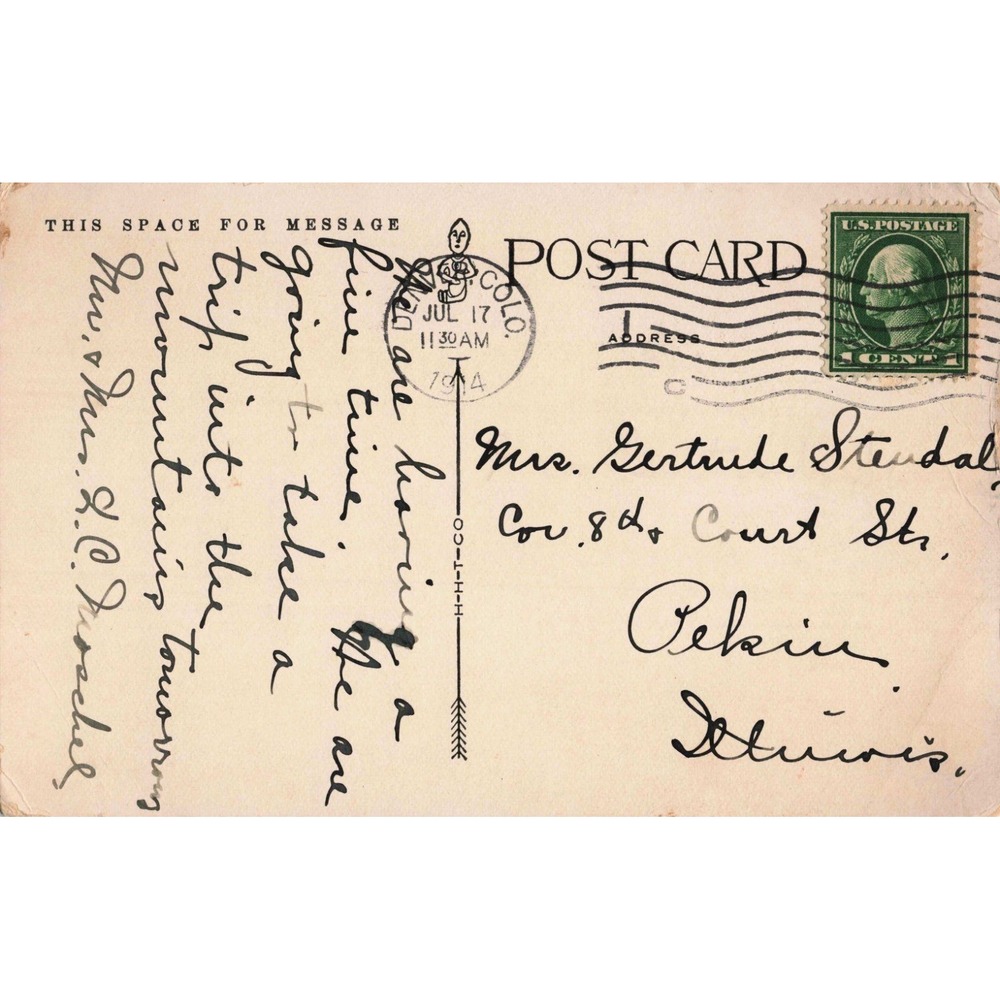 THIS SPACE FOR MESSAGE
POST CARD
U.S. POSTAGE
1 CENT 1
DENVER, COLO.
JUL 17
11 30 AM
1914
ADDRESS
We are having a
fine time. We are
going to take a
trip into the
mountains tomorrow
Mr. & Mrs. H.C. Moschel,
H-H-T-CO
Mrs. Gertrude Stendal,
Cor. 8th & Court Sts,
Pekin
Illinois.